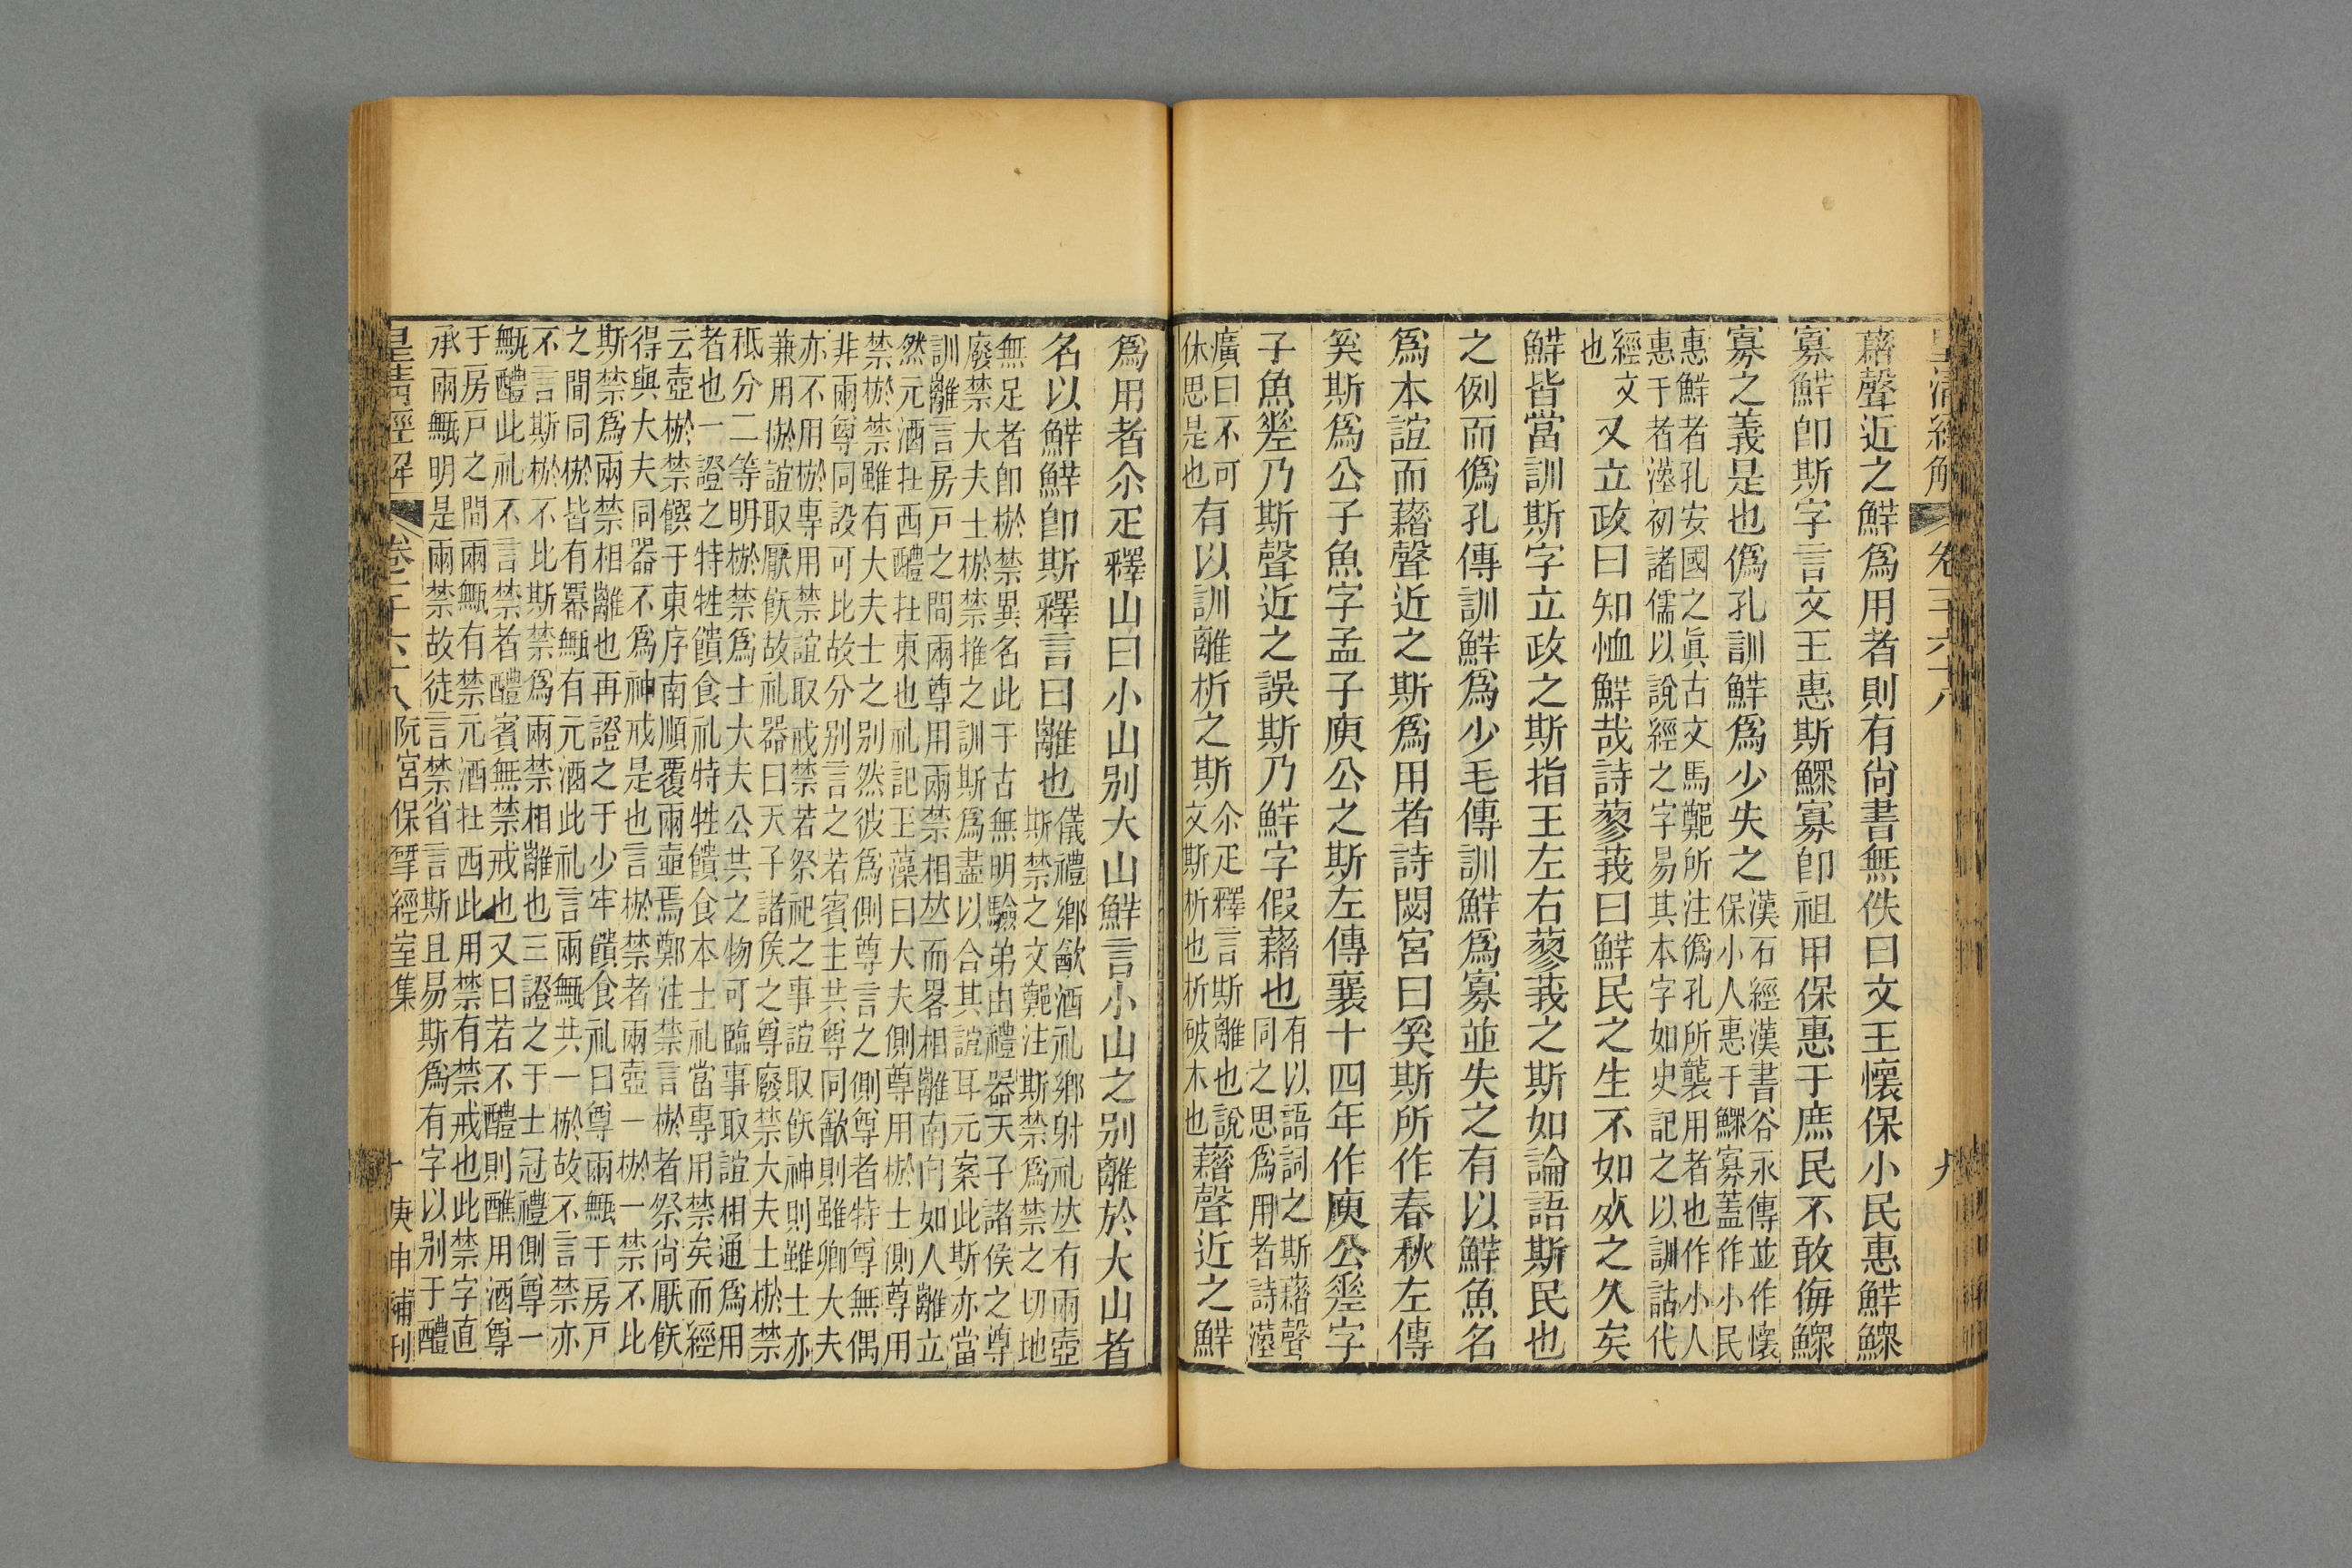 皇清經解 卷千六十八 九
藉聲近之鮮爲用者則有尙書無佚曰文王懷保小民惠鮮鰥
寡鮮卽斯字言文王惠斯鰥寡卽祖甲保惠于庶民不敢侮鰥
寡之義是也僞孔訓鮮爲少失之
漢石經漢書谷永傳並作懷
保小人惠于鰥寡蓋作小民
惠鮮者孔安國之眞古文馬鄭所注僞孔所襲用者也作小人
惠于者漢初諸儒以說經之字易其本字如史記之以訓詁代
經文
也
又立政曰知恤鮮哉詩蓼莪曰鮮民之生不如死之久矣
鮮皆當訓斯字立政之斯指王左右蓼莪之斯如論語斯民也
之例而僞孔傳訓鮮爲少毛傳訓鮮爲寡並失之有以鮮魚名
爲本誼而藉聲近之斯爲用者詩閟宮曰奚斯所作春秋左傳
奚斯爲公子魚字孟子庾公之斯左傳襄十四年作庾公差字
子魚差乃斯聲近之誤斯乃鮮字假藉也
有以語詞之斯藉聲
同之思爲用者詩漢
廣曰不可
休思是也
有以訓離析之斯
尒疋釋言斯離也說
文斯析也析破木也
藉聲近之鮮
爲用者尒疋釋山曰小山別大山鮮言小山之別離於大山者
名以鮮鮮卽斯釋言曰離也
儀禮鄉飮酒礼鄉射礼竝有兩壺
斯禁之文鄭注斯禁爲禁之切地
無足者卽棜禁異名此于古無明驗弟由禮器天子諸侯之尊
廢禁大夫士棜禁推之訓斯爲盡以合其誼耳元案此斯亦當
訓離言房戶之間兩尊用兩禁相竝而畧相離南向如人離立
然元酒在西醴在東也礼記玉藻曰大夫側尊用棜士側尊用
禁棜禁雖有大夫士之別然彼爲側尊言之側尊者特尊無偶
非兩尊同設可比故分別言之若賓主共尊同飮則雖卿大夫
亦不用棜專用禁誼取戒禁若祭祀之事誼取飫神則雖士亦
兼用棜誼取厭飫故礼器曰天子諸矦之尊廢禁大夫士棜禁
秪分二等明棜禁爲士大夫公共之物可臨事取誼相通爲用
者也一證之特牲饋食礼特牲饋食本士礼當專用禁矣而經
云壺棜禁饌于東序南順覆兩壺焉鄭注禁言棜者祭尙厭飫
得與大夫同器不爲神戒是也言棜禁者兩壺一棜一禁不比
斯禁爲兩禁相離也再證之于少牢饋食礼曰尊兩甒于房戶
之間同棜皆有冪甒有元酒此礼言兩甒共一棜故不言禁亦
不言斯棜不比斯禁爲兩禁相離也三證之于士冠禮側尊一
甒醴此礼不言禁者醴賓無禁戒也又曰若不醴則醮用酒尊
于房戶之間兩甒有禁元酒在西此用禁有禁戒也此禁字直
承兩甒明是兩禁故徒言禁省言斯且易斯爲有字以別于醴
皇清經解 卷千六十八 阮宮保揅經室集 十 庚申補刊